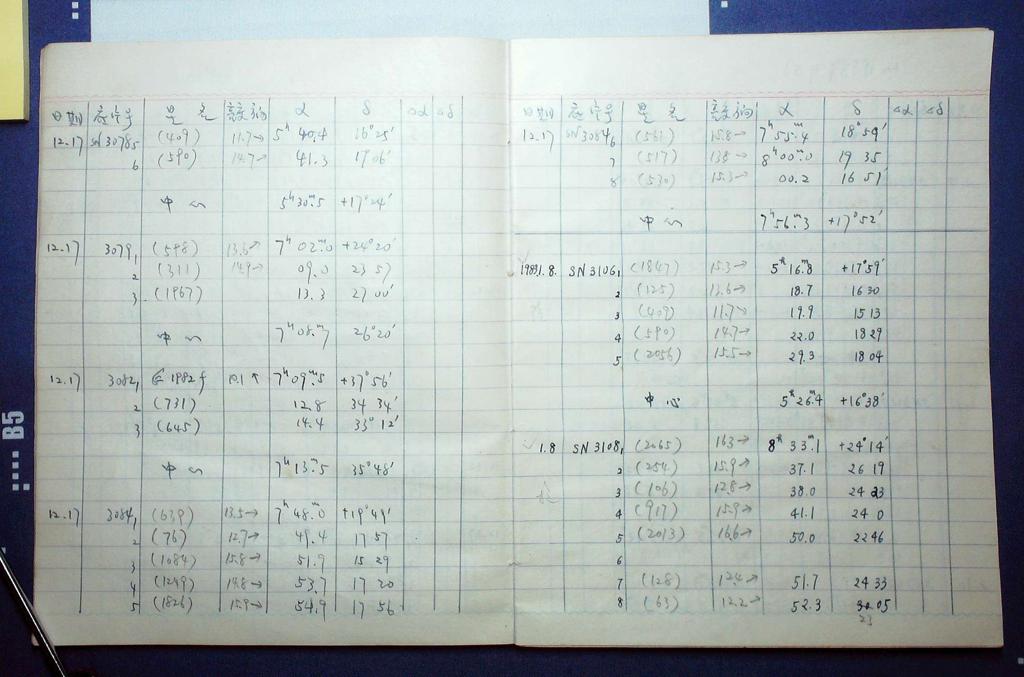 日期 底片号 星名 亮度 α δ Δα Δδ
12.17 SN3078 5 (409) 11.7→ 5h 40.4 16°25'
6 (590) 14.7→ 41.3 17 06'
中心 5h30m.5 +17°24'
12.17 3079 1 (598) 13.6→ 7h 02m.0 +24°20'
2 (311) 14.9→ 09.0 23 57
3 (1967) 13.3 27 00'
中心 7h08m.7 26°20'
12.17 3082 1 1982f 10.1↑ 7h09m.5 +37°56'
2 (731) 12.8 34 34'
3 (645) 14.4 33°12'
中心 7h13m.5 35°48'
12.17 3084 1 (639) 13.5→ 7h48m.0 +19°49'
2 (76) 12.7→ 49.4 17 57
3 (1084) 15.8→ 51.9 15 29
4 (1249) 14.8→ 53.7 17 20
5 (1826) 15.9→ 54.9 17 56
日期 底片号 星名 亮度 α δ Δα Δδ
12.17 SN3084 6 (561) 15.8→ 7h55m.4 18°59'
7 (517) 13.8→ 8h00m.0 19 35
8 (530) 15.3→ 00.2 16 51'
中心 7h56m.3 +17°52'
1983.1.8. SN3106 1 (1847) 15.3→ 5h16m.8 +17°59'
2 (125) 13.6→ 18.7 16 30
3 (409) 11.7→ 19.9 15 13
4 (590) 14.7→ 22.0 18 29
5 (2056) 15.5→ 29.3 18 04
中心 5h26m.4 +16°38'
1.8 SN3108 1 (2065) 16.3→ 8h33m.1 +24°14'
2 (254) 15.9→ 37.1 26 19
3 (106) 12.8→ 38.0 24 23
4 (917) 15.9→ 41.1 24 0
5 (2013) 16.6→ 50.0 22 46
6
7 (128) 12.4→ 51.7 24 33
8 (63) 12.2→ 52.3 05
23
B5